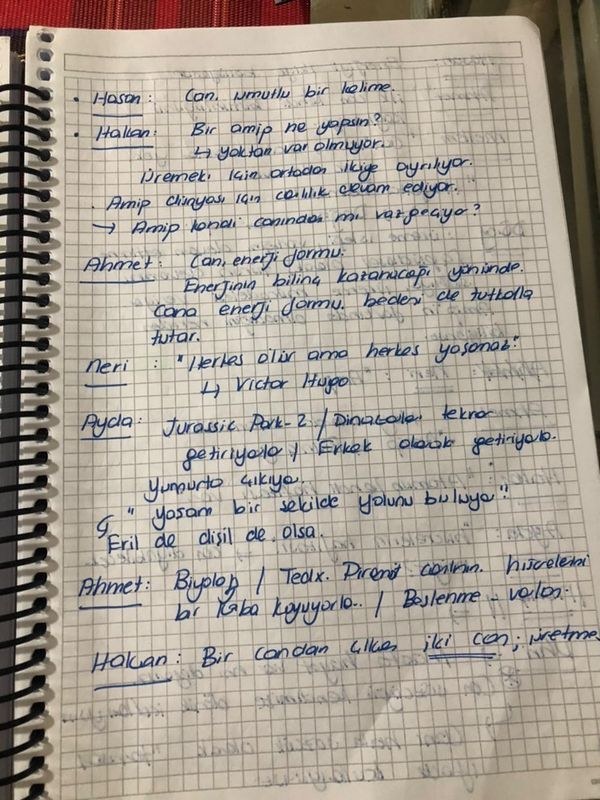 • Hasan: Can, umutlu bir kelime.
• Hakan: Bir amip ne yapsın?
↳ yoktan var olmuyor.
Üremek için ortadan ikiye ayrılıyor.
Amip dünyası için canlılık devam ediyor.
→ Amip kendi canından mı vazgeçiyor?
Ahmet: Can, enerji formu.
Enerjinin bilinç kazanacağı yönünde.
cana enerji formu, bedeni de tutkalla
tutar.
Neri: "Herkes ölür ama herkes yaşamaz."
↳ Victor Hugo
Ayda: Jurassic Park-2 / Dinozorları tekrar
getiriyorlar / Erkek olarak getiriyorlar.
Yumurta çıkıyor.
"Yaşam bir şekilde yolunu buluyor"
Eril de dişil de olsa.
Ahmet: Biyoloji / Tedx. canlının hücrelerini
bir kaba koyuyorlar. / Beslenme
Hakan: Bir candan çıkan iki can; üretme